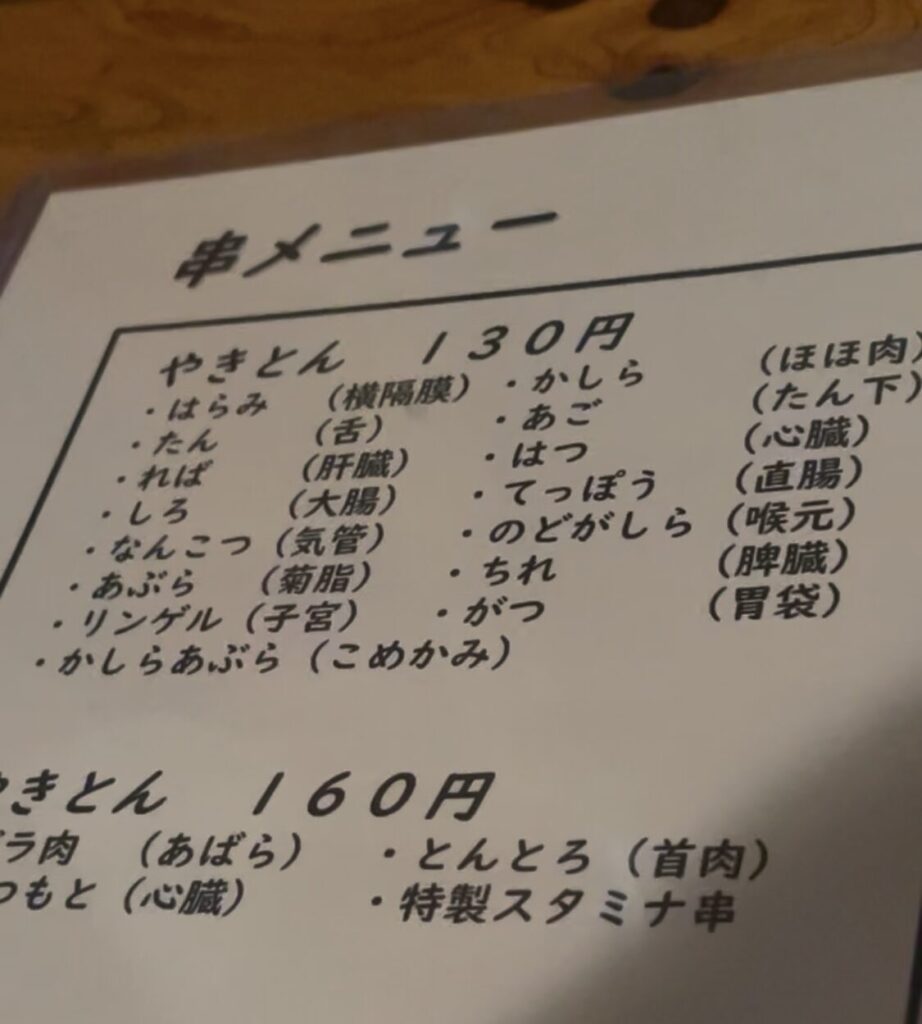 串メニュー
やきとん 130円
・はらみ (横隔膜) ・かしら (ほほ肉)
・たん (舌) ・あご (たん下)
・れば (肝臓) ・はつ (心臓)
・しろ (大腸) ・てっぽう (直腸)
・なんこつ (気管) ・のどがしら (喉元)
・あぶら (菊脂) ・ちれ (脾臓)
・リンゲル (子宮) ・がつ (胃袋)
・かしらあぶら (こめかみ)
やきとん 160円
ラ肉 (あばら) ・とんとろ (首肉)
つもと (心臓) ・特製スタミナ串